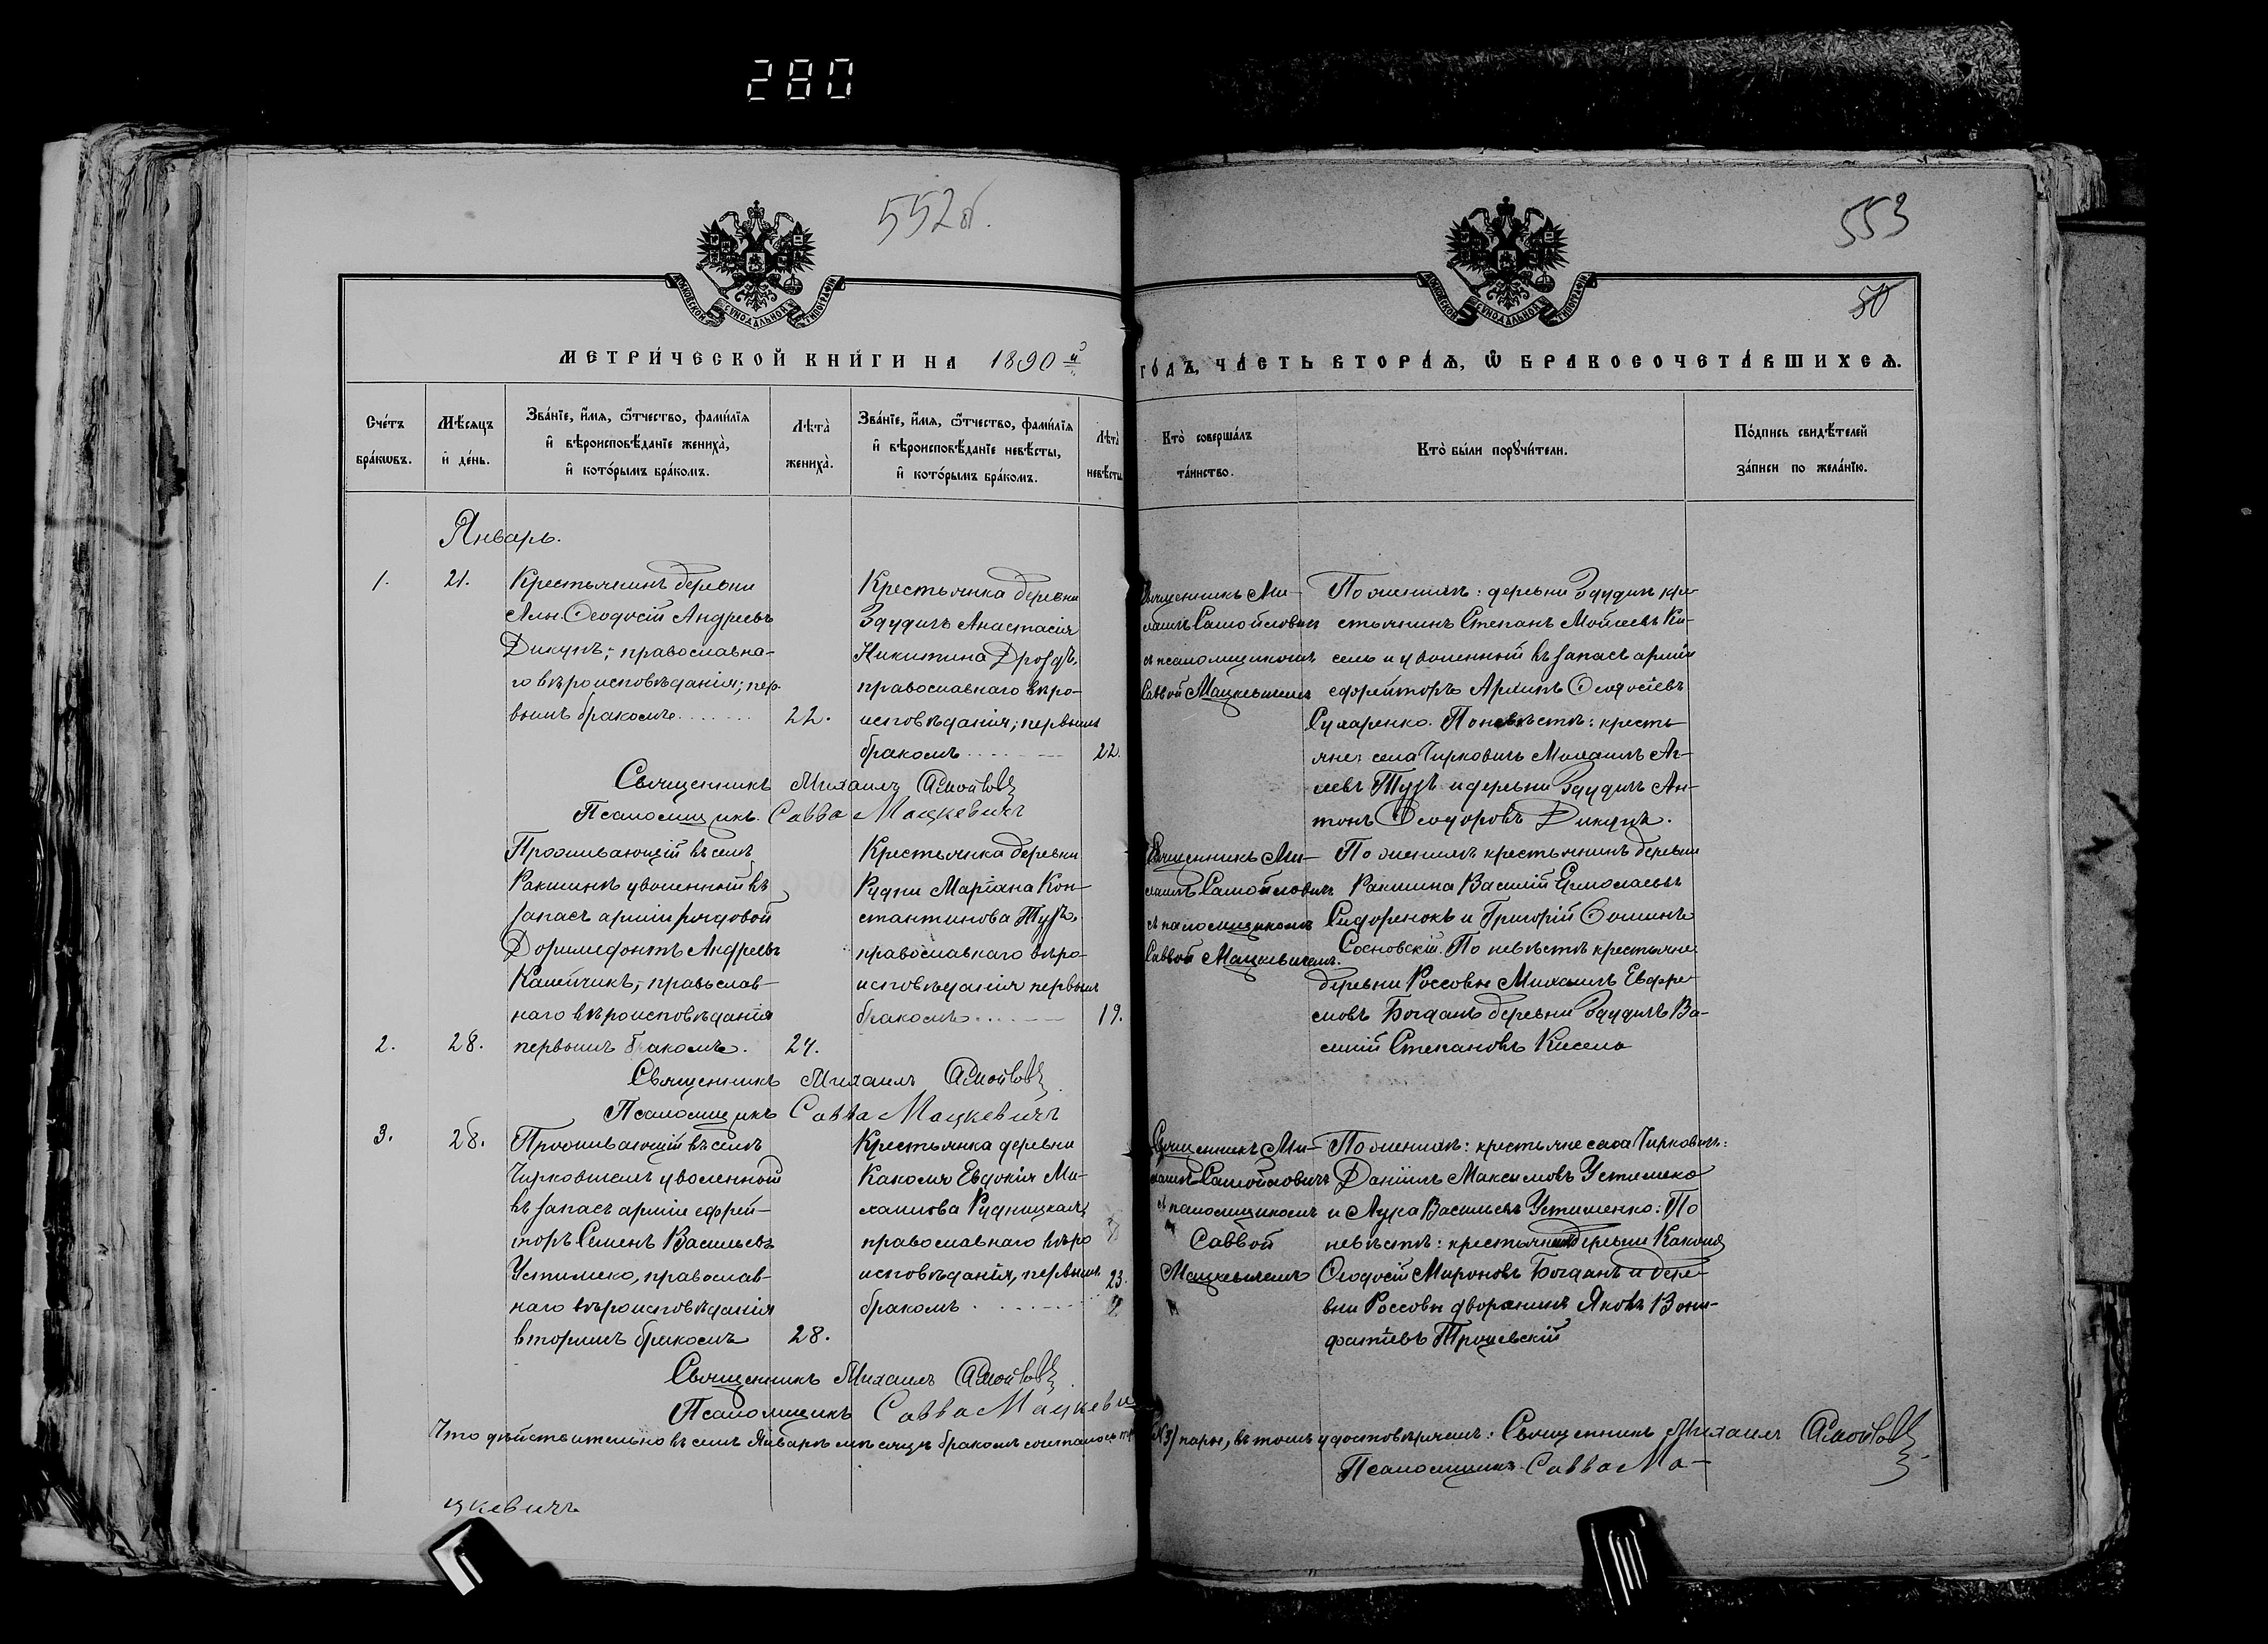 280
552об.
553
50
МОСКОВСКОЙ СѴНОДАЛЬНОЙ ТИПОГРАФІИ
МОСКОВСКОЙ СѴНОДАЛЬНОЙ ТИПОГРАФІИ
МЕТРИ́ЧЕСКОЙ КНИ́ГИ НА 1890 й
ГО́ДЪ, ЧА́СТЬ ВТОРА́Ѧ, Ѽ БРАКОСОЧЕТА́ВШИХСѦ.
Сче́тъ
бра́кѡвъ.
Мѣ́сѧцъ
и҆ де́нь.
Зва́нїе, и҆́мѧ, ѻ҆́тчество, фами́лїѧ
и҆ вѣроисповѣ́данїе жениха̀,
и҆ кото́рымъ бра́комъ.
Лѣта̀
жениха̀.
Зва́нїе, и҆́мѧ, ѻ҆́тчество, фами́лїѧ
и҆ вѣроисповѣ́данїе невѣ́сты,
и҆ кото́рымъ бра́комъ.
Лѣта̀
невѣ́сты
Кто̀ соверша́лъ
та́инство.
Кто̀ бы́ли порꙋчи́тели.
По́дпись свидѣ́телей
за́писи по жела́нїю.
Январь.
1.
21.
Крестьянинъ деревни
Ѳеодосій Андреевъ
Дикунъ; православна-
го вѣроисповѣданія; пер-
вымъ бракомъ.......
22.
Крестьянка деревни
Здудичъ Анастасія
Никитина Дроздъ,
православнаго вѣро-
исповѣданія; первымъ
бракомъ
22.
Священникъ Ми-
хаилъ Самойловичъ
съ псаломщикомъ
Саввой Мацкевичемъ
По женихѣ: деревни Здудичъ кре-
стьянинъ Степанъ Мойсеевъ Ки-
сель и уволенный въ запасъ арміи
ефрейторъ Архипъ Ѳеодосіевъ
Сухаренко. По невѣстѣ: кресть-
яне: села Чирковичъ Михаилъ Аг-
Тузъ и деревни Здудичъ Ан-
тонъ Ѳеодоровъ Дикунъ.
Священникъ Михаилъ Самойлов
Псаломщикъ Савва Мацкевичъ
2.
28.
Проживающій въ селѣ
Ракшинѣ уволенный въ
запасъ арміи рядовой
Доримедонтъ Андреевъ
Капейчикъ, православ-
наго вѣроисповѣданія
первымъ бракомъ.
24.
Крестьянка деревни
Рудни Маріана Кон-
стантинова Тузъ,
православнаго вѣро-
исповѣданія первымъ
бракомъ
19.
Священникъ Ми-
хаилъ Самойловичъ
съ псаломщикомъ
Саввой Мацкевичемъ.
По женихѣ крестьянинъ деревни
Ракшина Василій Ермолаевъ
Сидоренокъ и Григорій Ѳоминъ
Сосновскій. По невѣстѣ крестьяне
деревни Россовы Михаилъ Евфре-
мовъ Богданъ деревни Здудичъ Ва-
силій Степановъ Кисель
Священникъ Михаилъ Самойлов
Псаломщикъ Савва Мацкевичъ
3.
28.
Проживающій въ селѣ
Чирковичахъ уволенный
въ запасъ арміи ефрей-
торъ Семенъ Васильевъ
Устименко, православ-
наго вѣроисповѣданія
вторымъ бракомъ
28.
Крестьянка деревни
Какеля Евдокія Ми-
хаилова Рудницкая,
православнаго вѣро
исповѣданія, первымъ
бракомъ
23.
Священникъ Ми-
хаилъ Самойловичъ
съ псаломщикомъ
Саввой
Мацкевичемъ
По женихѣ: крестьяне села Чирковичъ:
Даніилъ Максимовъ Устименко
и Лука Васильевъ Устименко: По
невѣстѣ: крестьянинъ деревни
Ѳеодосій Мироновъ Богданъ и дере-
вни Россовы дворянинъ Яковъ Вони-
фатіевъ
Священникъ Михаилъ Самойлов
Псаломщикъ Савва Мацкеви
Что дѣйствительно въ семъ Январѣ мѣсяцѣ бракомъ сочталось три /№3/ пары, въ томъ удостовѣряемъ: Священникъ Михаилъ Самойлов
Псаломщикъ Савва Ма-
цкевичъ